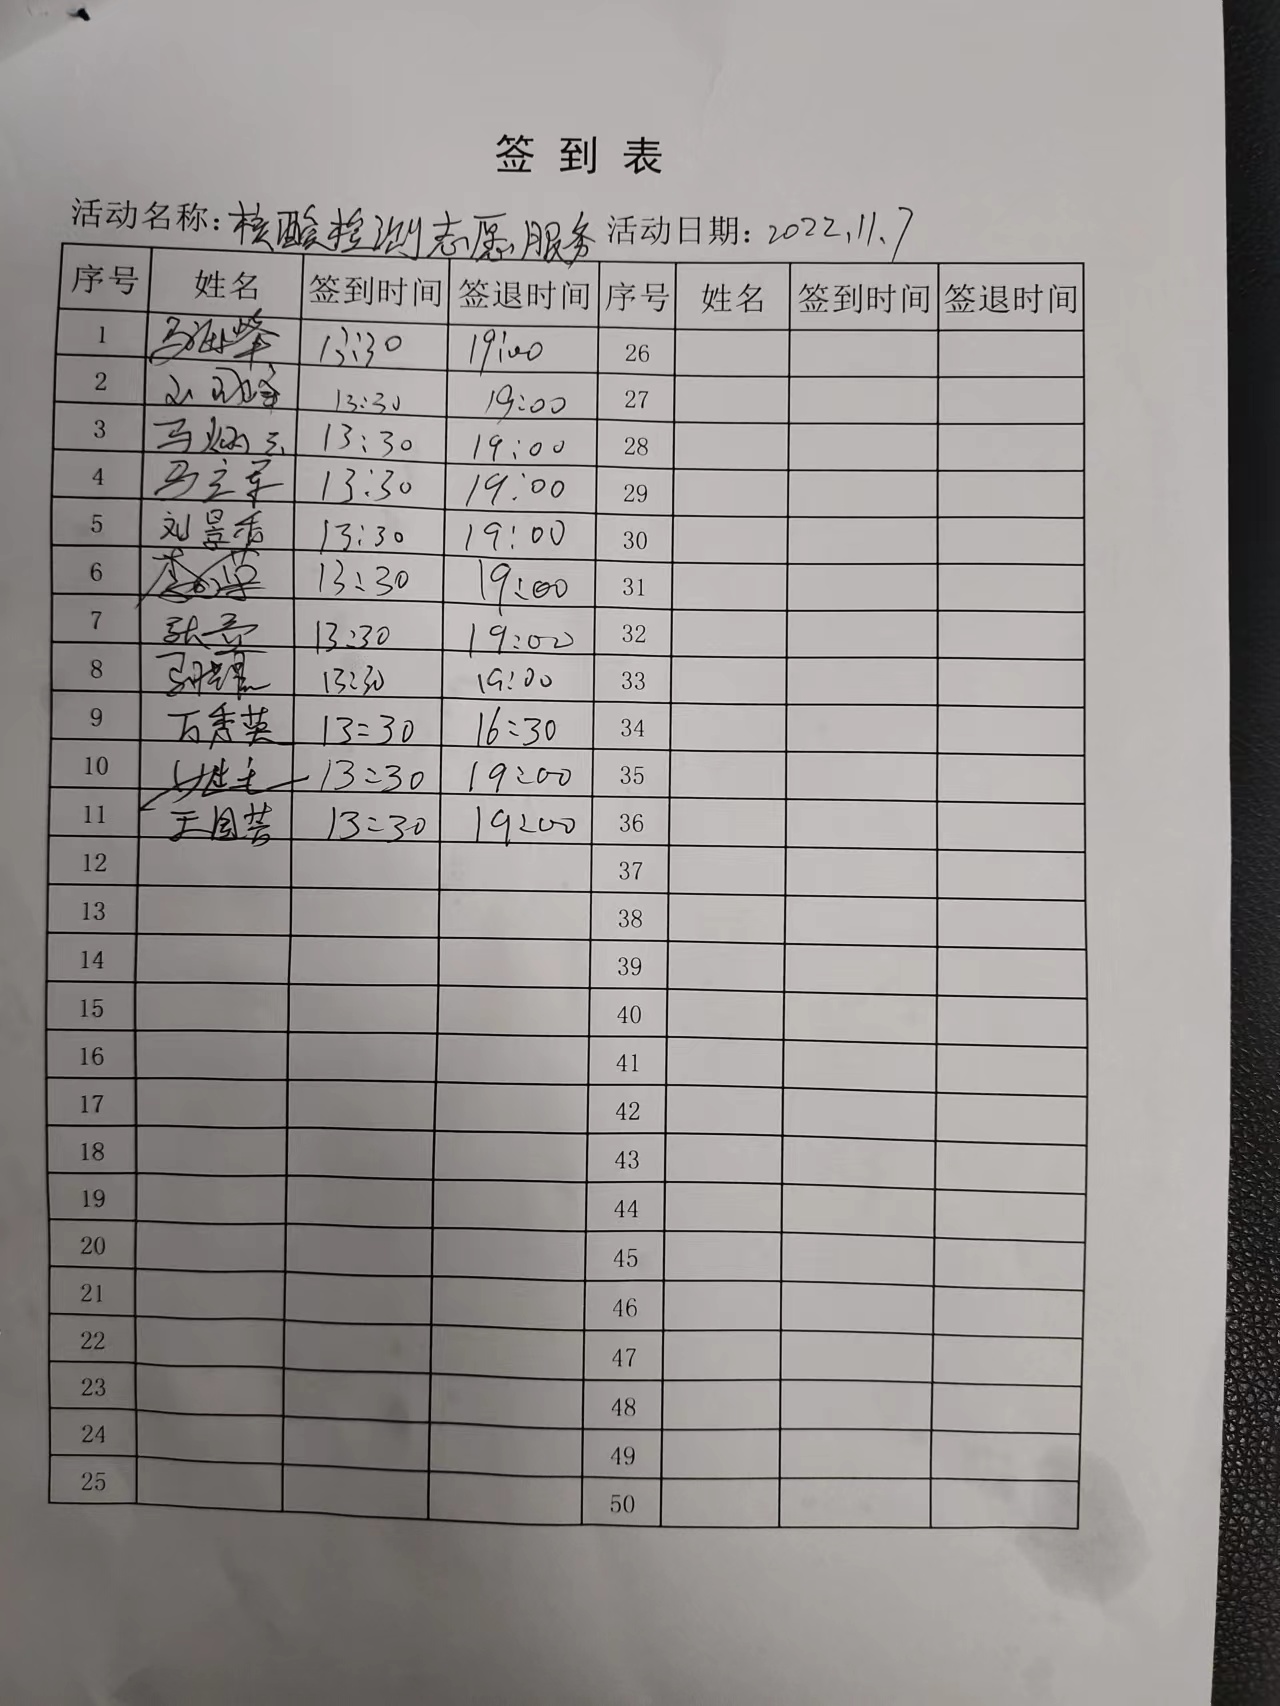 签到表
活动名称:核酸检测志愿服务 活动日期:2022.11.7
序号 姓名 签到时间 签退时间 序号 姓名 签到时间 签退时间
1 13:30 19:00 26
2 13:30 19:00 27
3 13:30 19:00 28
4 马立军 13:30 19:00 29
5 刘景香 13:30 19:00 30
6 13:30 19:00 31
7 张亮 13:30 19:00 32
8 13:30 19:00 33
9 万秀英 13:30 16:30 34
10 13:30 19:00 35
11 13:30 19:00 36
12 37
13 38
14 39
15 40
16 41
17 42
18 43
19 44
20 45
21 46
22 47
23 48
24 49
25 50